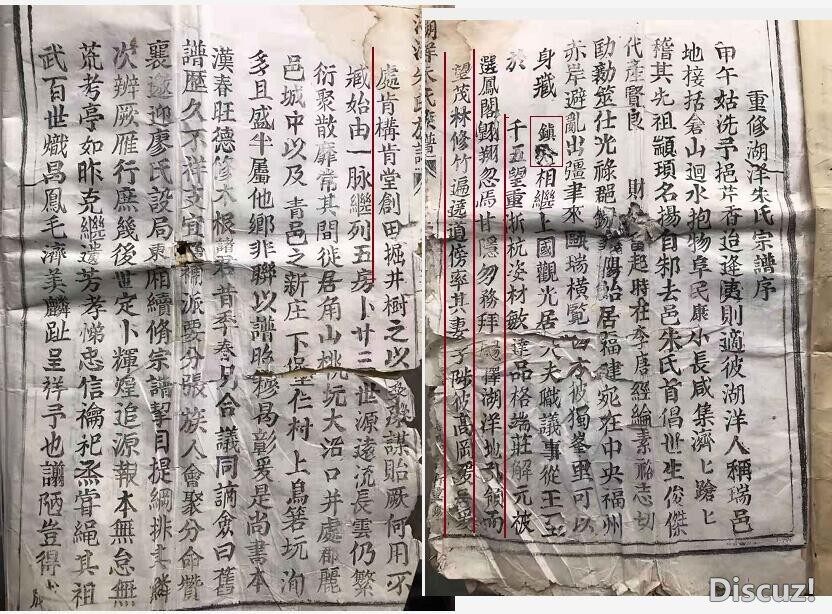 重修湖洋朱氏宗譜序
甲午姑洗予挹芹香迨逢夷則適彼湖洋人稱瑞邑
地接括倉山迴水抱物阜民康小長咸集濟匕蹌匕
稽其先祖顓頊名揚自邾去邑朱氏首倡世生俊傑
代產賢良 財 起時在李唐經綸素裕志切
勛勷筮仕光祿 始居福建宛在中央福州
赤岸避亂出彊聿來甌瑞橫覽 彼獨峯里可以
身藏 鎮 相繼上國觀光居大夫職議事從王至
於 十五望重浙杭姿材敏達品格端莊解元被
選鳳閣翱翔忽焉甘隱勿務拜 擇湖洋地孔 而
望茂林修竹遍遶道傍率其妻子陟彼高岡爰
湖洋朱氏族譜
處肯構肯堂創田掘井樹之以 謀貽厥何用不
臧始由一脉繼列五房卜廿三世源遠流長雲仍繁
衍聚散靡常其間徙居角山桃坑大浯口并處郡麗
邑城中以及青邑之新庄下堡仁村上鳥箬坑洵
多且盛半屬他鄉非聯以譜昭穆曷彰爰是尚書本
漢春旺德修木根諸君昔季春月合議同詢僉曰舊
譜歷久不祥支宜 派要分張族人會聚分命贊
襄邀迎廖氏設局東廂續脩宗譜挈目提綱排其鱗
次辨厥雁行庶幾後世定卜輝煌追源報本無怠無
荒考亭如昨克繼遺芳孝悌忠信禴祀烝嘗繩其祖
武百世熾昌鳳毛濟美麟趾呈祥予也謭陋豈得
Discuz!